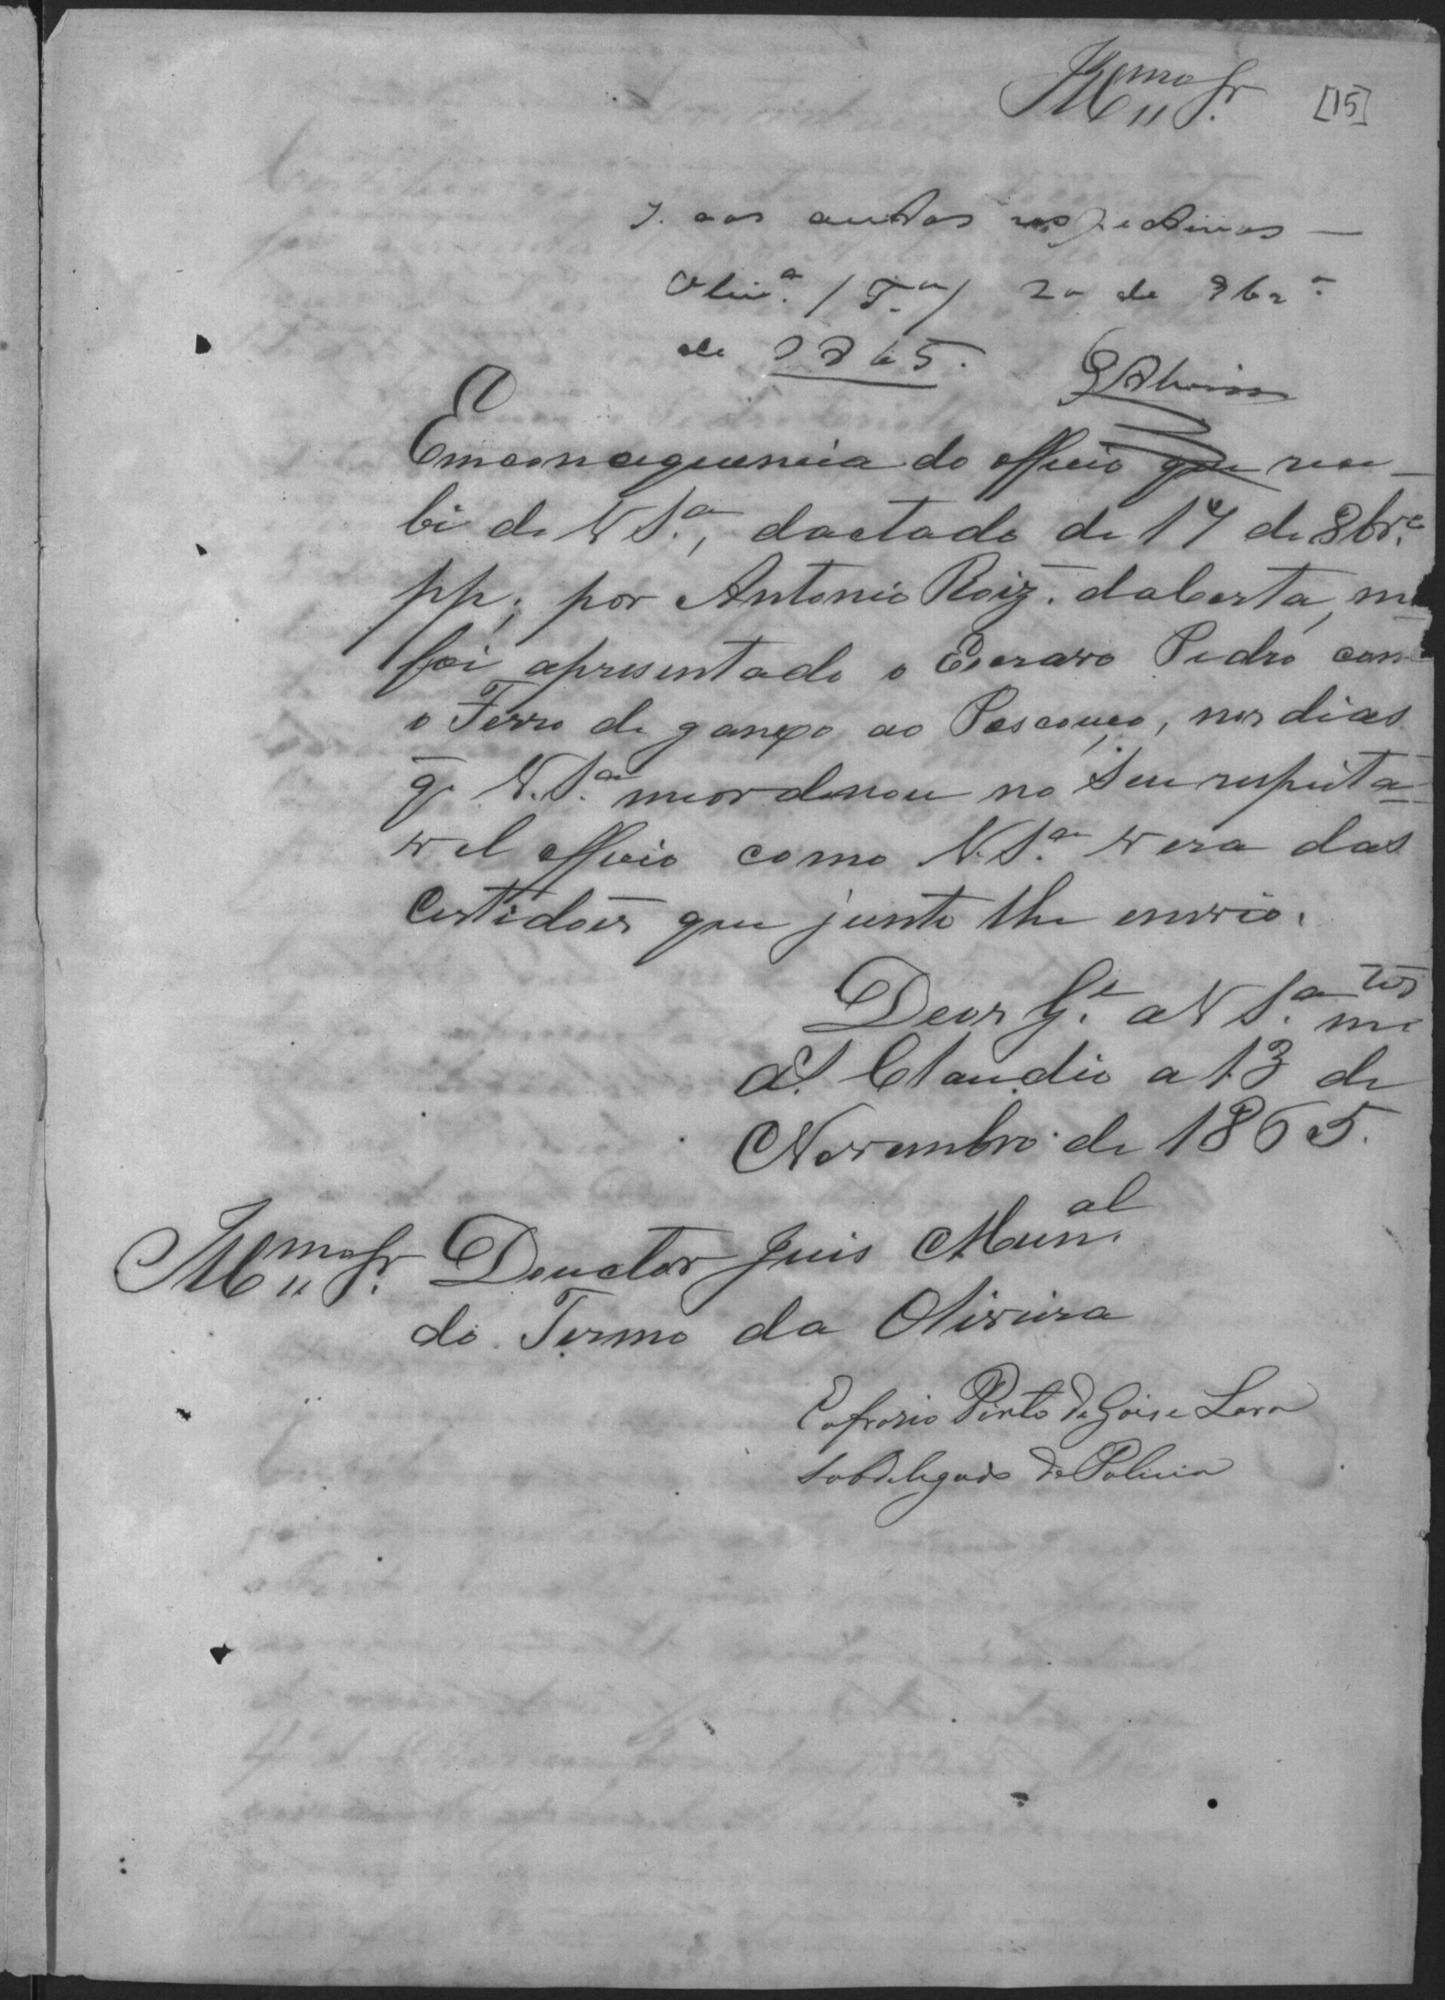 Illmo Sr.
[15]
J. aos autos respectivos —
Olivª. / Tª. / 20 de 9br.º
de 1865.
Em consequencia do officio que rece-
bi de V Sª., dactado de 17 de 8br.º
pp; por Antonio Roiz. da Costa, me
foi apresentado o Escravo Pedro com
o Ferro de ganxo ao Pescouço, nos dias
q. V. Sª. me ordenou no Seu respeita-
vel officio como V. Sª. vera das
Certidoẽs que junto lhe envio.
Deos G.e a V Sª.
S. Claudio a 13 de
Novembro de 1865.
Illmo Sr. Douctor Juis Mun.al
do Termo da Oliveira
Eofrosio Pinto de Gois e Lara
Subdelegado de Policia